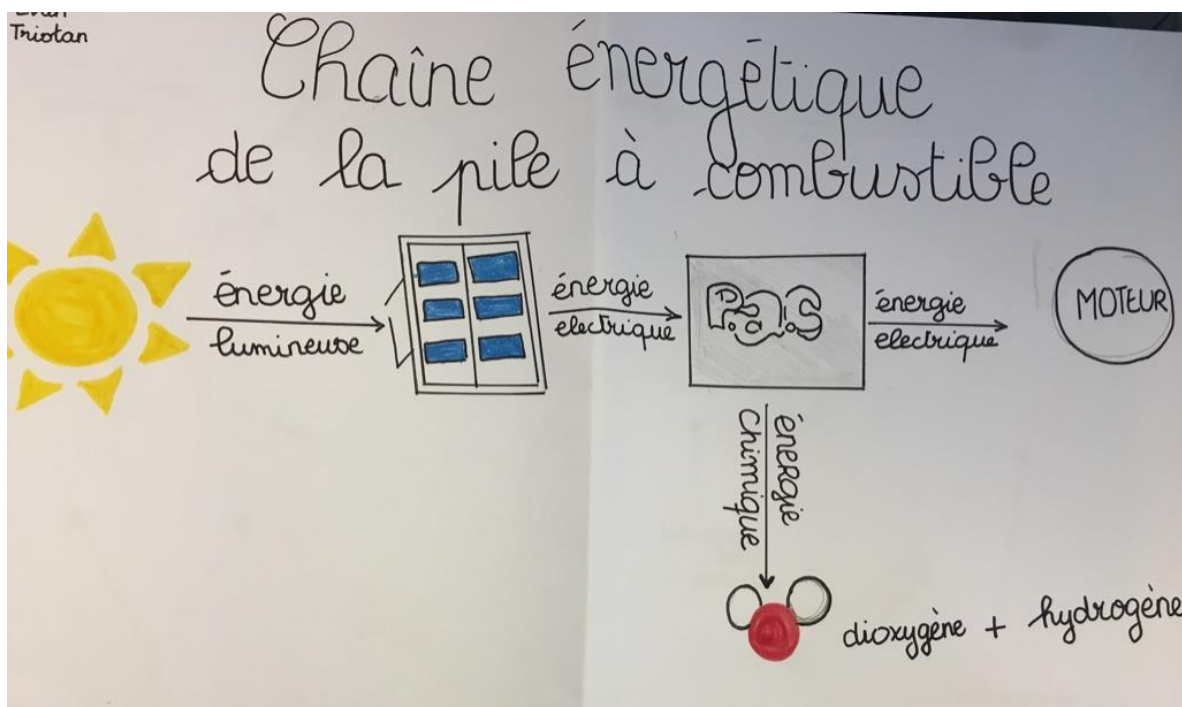 Tristan
Chaîne énergétique
de la pile à combustible
énergie
lumineuse
énergie
electrique
énergie
electrique
MOTEUR
énergie
chimique
dioxygène + hydrogène